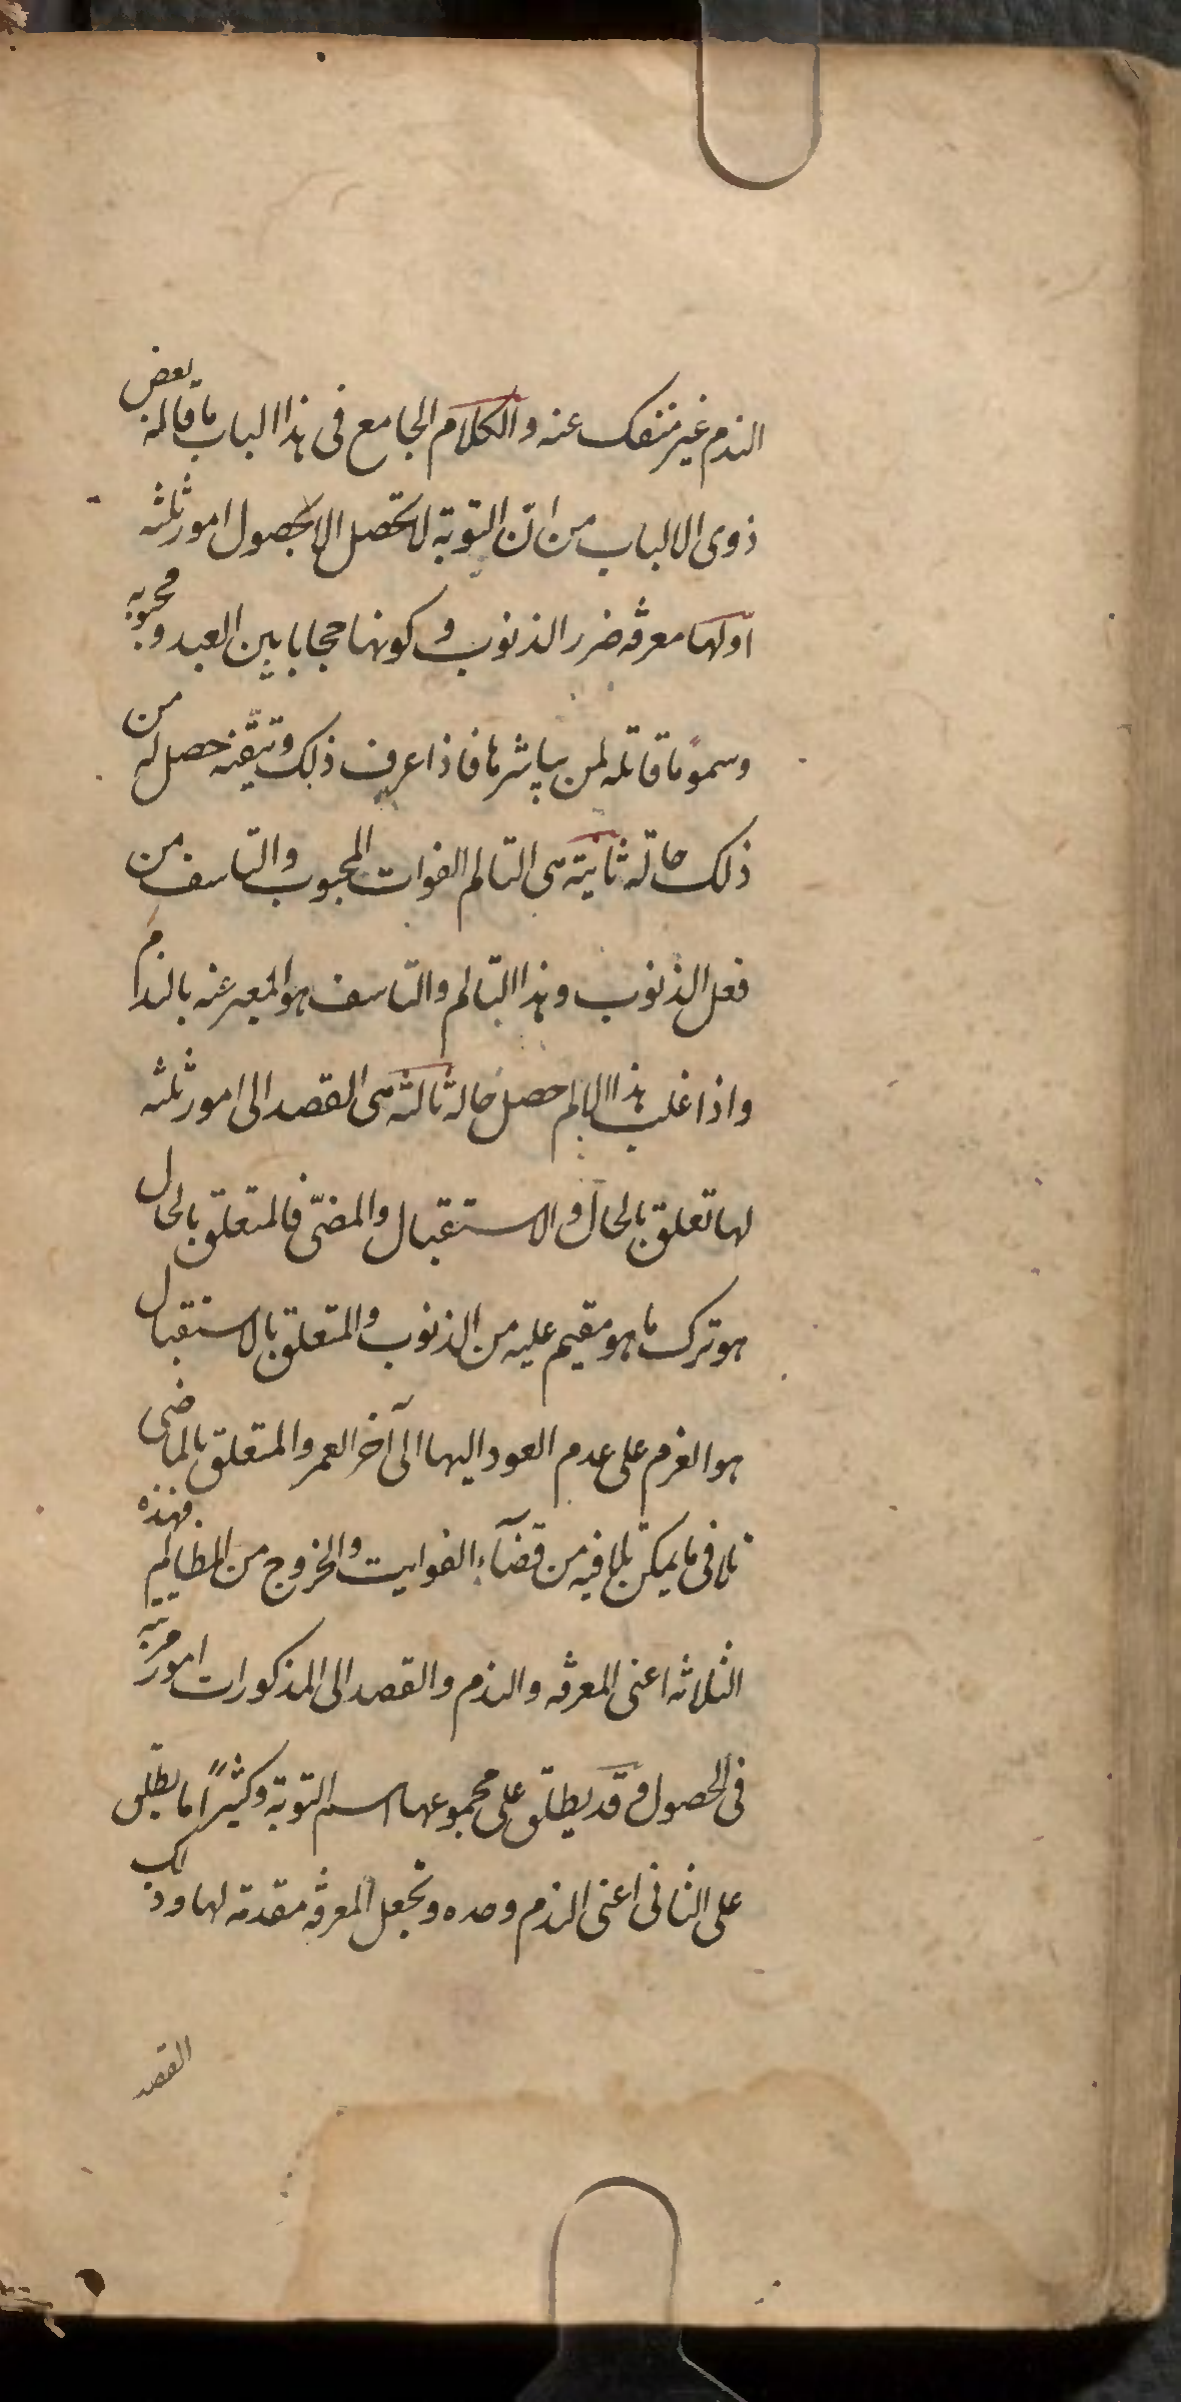 الندم غير منفك عنه والكلام الجامع فى هذا الباب ما قاله بعض
ذوى الالباب من ان التوبة لا تحصل الا بحصول امور ثلثه
اولها معرفه ضرر الذنوب وكونها حجابا بين العبد ومحبوبه
وسموما قاتله لمن يباشرها فاذا عرف ذلك وتيقنه حصل له من
ذلك حالة ثانية هى التالم الفوات المحبوب والتاسف من
فعل الذنوب وهذا التالم والتاسف هو المعبر عنه بالندم
واذا غلب هذا الالم حصل حالة ثالثة هى القصد الى امور ثلثه
لها تعلق بالحال والاستقبال والمضىّ فالمتعلق بالحال
هو ترك ما هو مقيم عليه من الذنوب والمتعلق بالاستقبال
هو العزم على عدم العود اليها الى آخر العمر والمتعلق بالماضى
تلافى ما يمكن تلافيه من قضآء الفوايت والخروج من المظالم فهذه
الثلاثه اعنى المعرفه والندم والقصد الى المذكورات امور مرتبة
فى الحصول وقد يطلق على مجموعها اسم التوبة وكثيرًا ما يطلق
على الثانى اعنى الندم وحده وتجعل المعرفه مقدمة لها وذلك
القصد